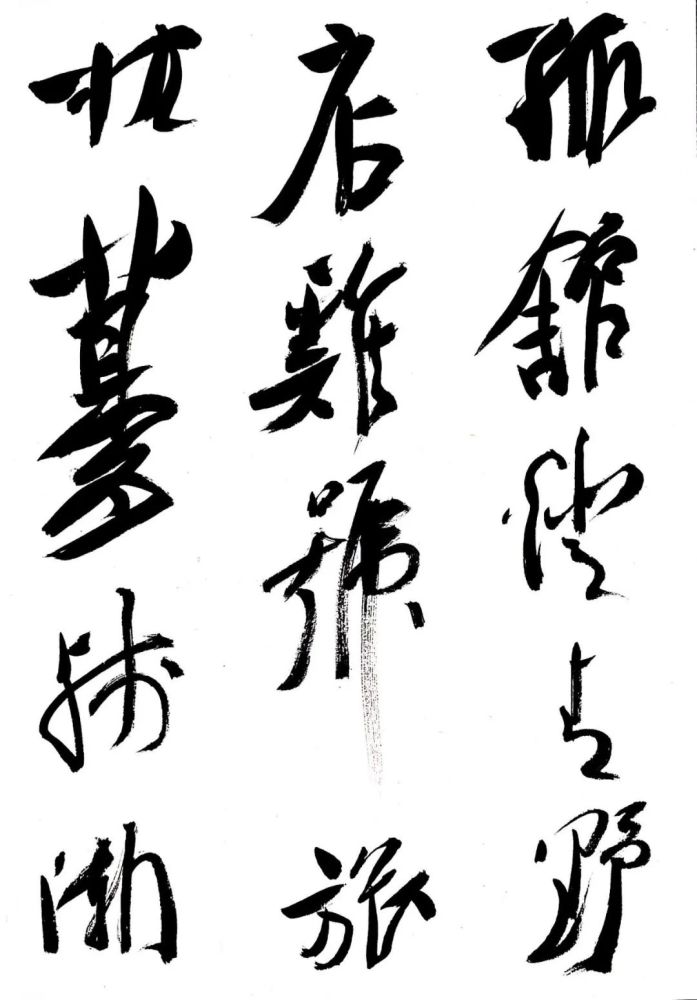 孤館燈青野
店雞號旅
枕夢殘漸